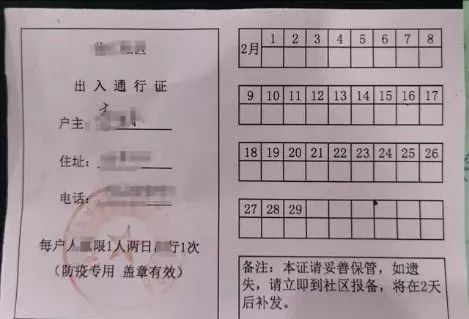 出入通行证
户主:
住址:
电话:
每户 限1人两日 行1次
（防疫专用 盖章有效）
2月 1 2 3 4 5 6 7 8
9 10 11 12 13 14 15 16 17
18 19 20 21 22 23 24 25 26
27 28 29
备注：本证请妥善保管，如遗
失，请立即到社区报备，将在2天
后补发。